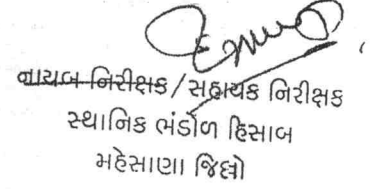 નાયબ નિરીક્ષક / સહાયક નિરીક્ષક
સ્થાનિક ભંડોળ હિસાબ
મહેસાણા જિલ્લો